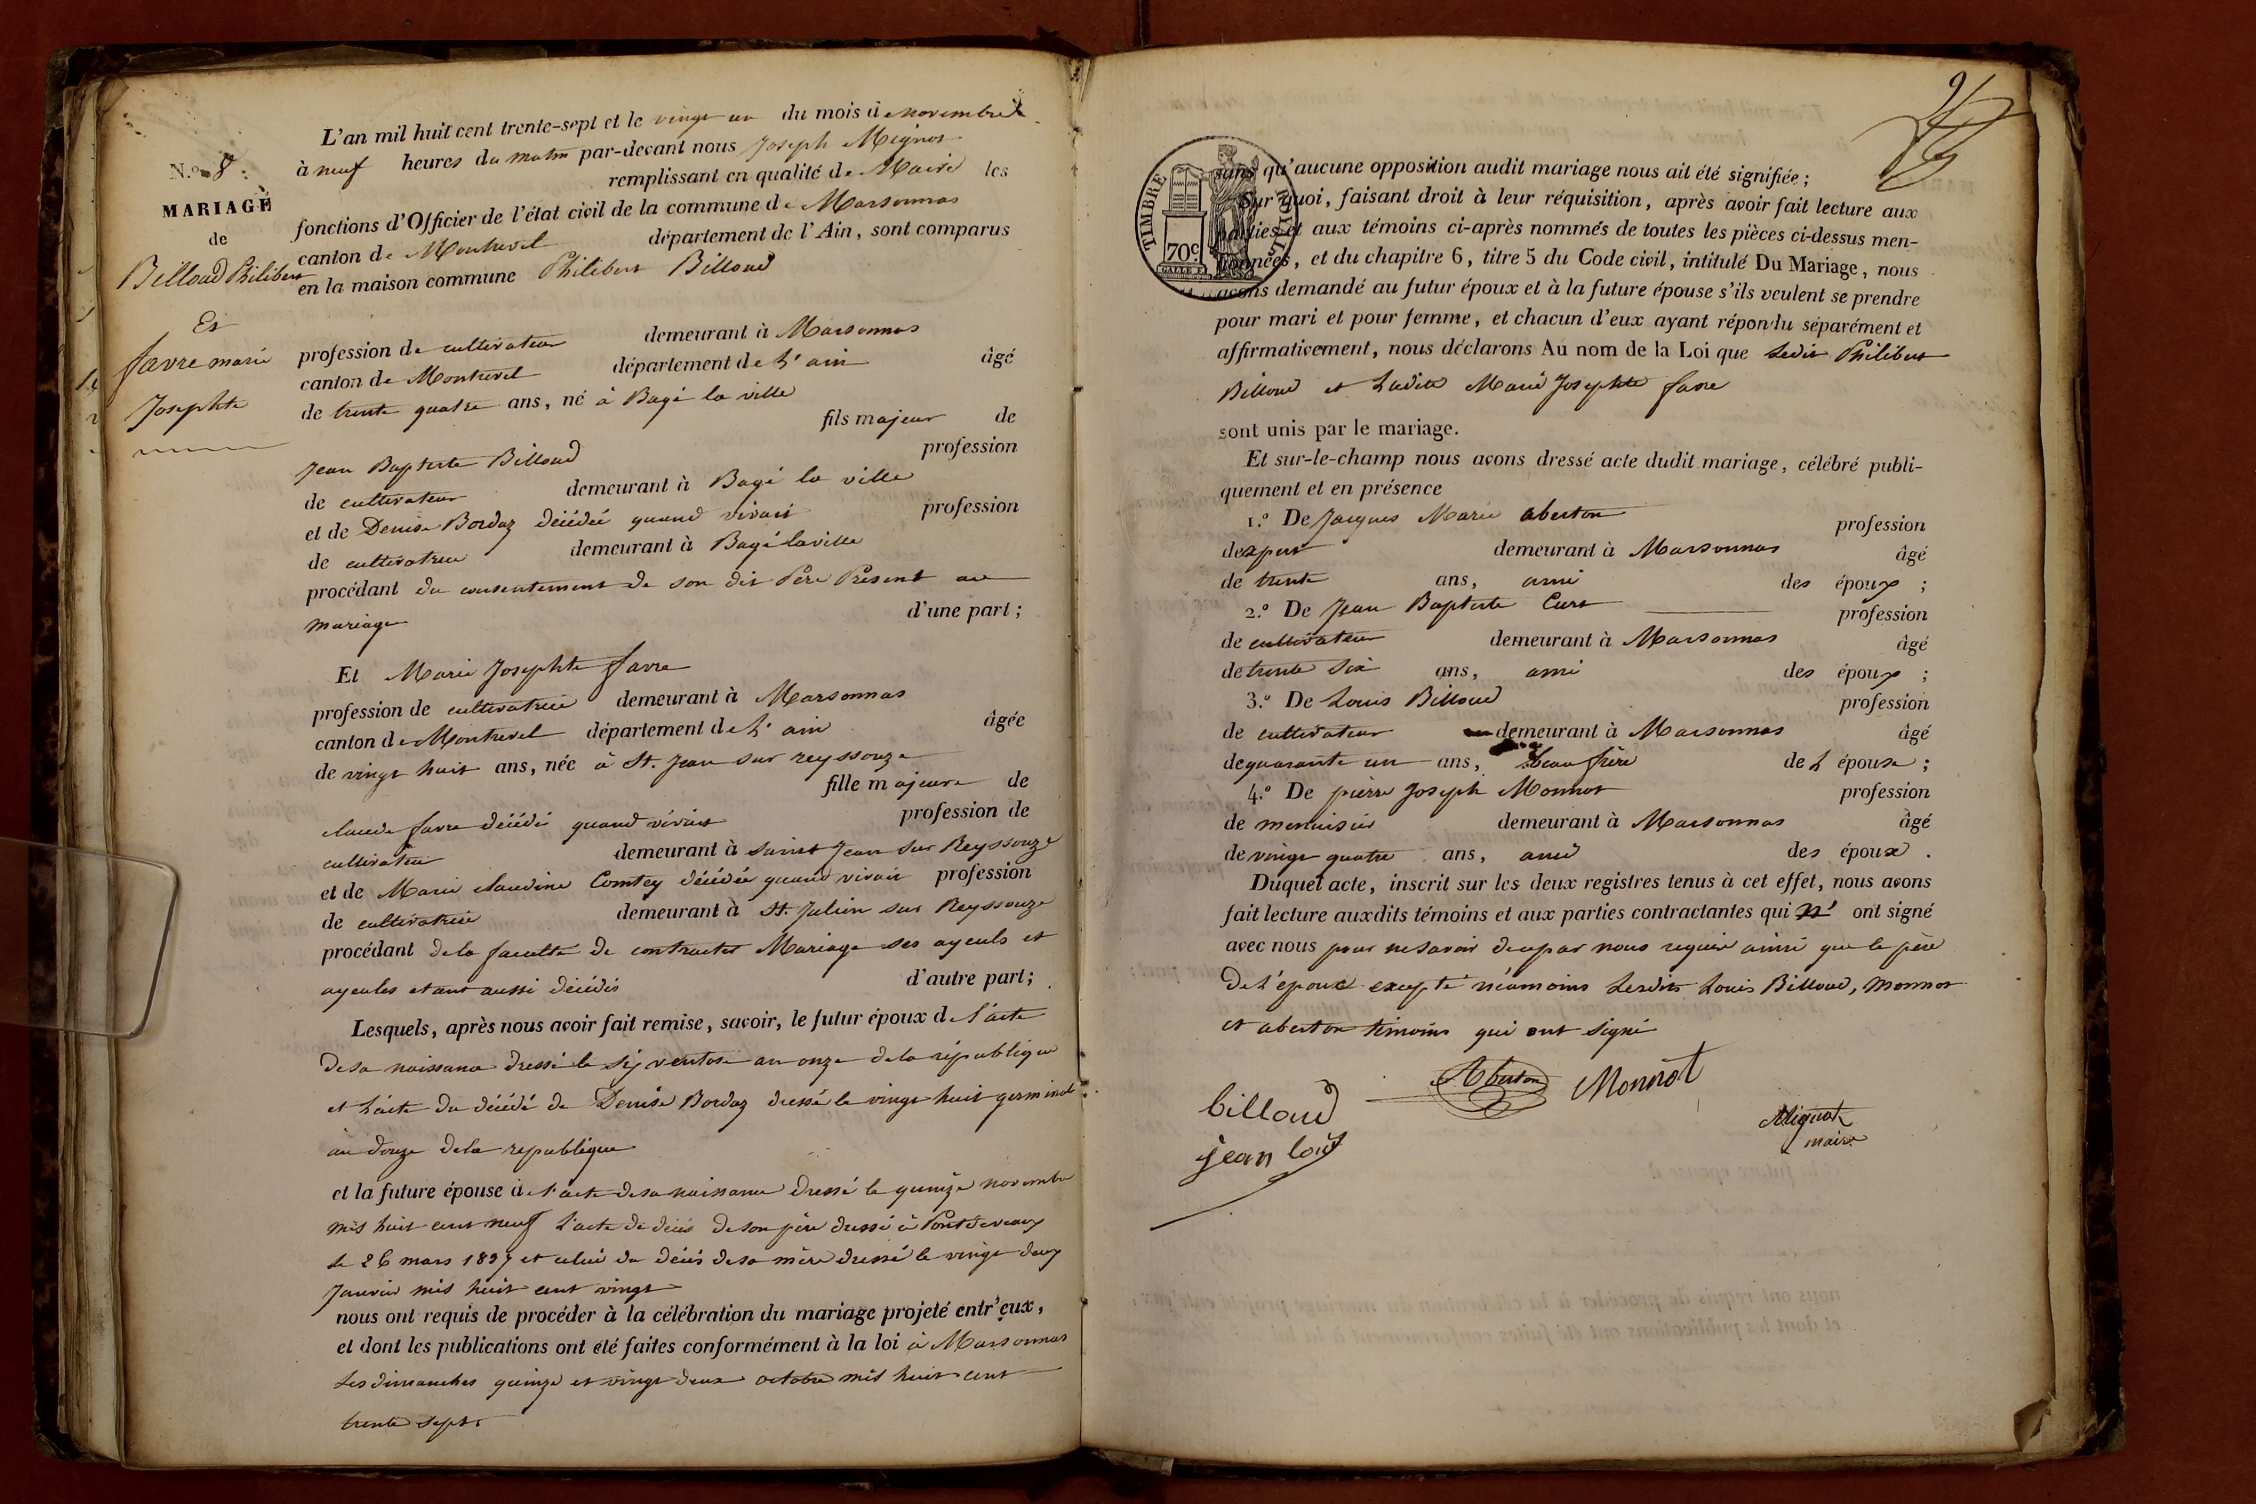 L'an mil huit cent trente-sept et le vingt un du mois de novembre
à neuf heures du matin par-devant nous Joseph Mignot
remplissant en qualité de Maire les
fonctions d'Officier de l'état civil de la commune de Marsonnas
canton de Montrevel département de l'Ain, sont comparus
en la maison commune Philibert Billoud
N.º 8
MARIAGE
de
Billoud Philibert
Et
favre marie
Josephte
profession de cultivateur demeurant à Marsonnas
canton de Montrevel département de L'ain âgé
de trente quatre ans, né à Bagé la ville
fils majeur de
Jean Baptiste Billoud profession
de cultivateur demeurant à Bagé la ville
et de Denise Bordaz décédée quand vivait profession
de cultivatrice demeurant à Bagé laville
procédant du consentement de son dit Père Présent au
mariage d'une part;
Et Marie Josephte favre
profession de cultivatrice demeurant à Marsonnas
canton de Montrevel département de L'ain âgée
de vingt huit ans, née à St. Jean sur reyssouze
fille majeure de
claude favre décédé quand vivait profession de
cultivateur demeurant à saint Jean sur Reyssouze
et de Marie claudine Comtey décédée quand vivait profession
de cultivatrice demeurant à St. Julien sur Reyssouze
procédant dela faculté de contracter Mariage ses ayeuls et
ayeules etant aussi décédés d'autre part;
Lesquels, après nous avoir fait remise, savoir, le futur époux de l'acte
desa naissance dressé le six ventose an onze dela république
et L'acte du décédé de Denise Bordaz dressé le vingt huit germinal
an douze dela republique
et la future épouse de l'acte desa naissance dressé le quinze novembre
mil huit cent neuf L'acte de décés deson père dressé à Pontdevaux
Le 26 mars 1837 et celui du décés desa mère dressé le vingt deux
Janvier mil huit cent vingt
nous ont requis de procéder à la célébration du mariage projeté entr'eux,
et dont les publications ont été faites conformément à la loi à Marsonnas
Les dimanches quinze et vingt deux octobre mil huit cent
trente sept.
TIMBRE ROYAL
70c
sans qu'aucune opposition audit mariage nous ait été signifiée;
Sur quoi, faisant droit à leur réquisition, après avoir fait lecture aux
parties et aux témoins ci-après nommés de toutes les pièces ci-dessus men-
tionnées, et du chapitre 6, titre 5 du Code civil, intitulé Du Mariage, nous
avons demandé au futur époux et à la future épouse s'ils veulent se prendre
pour mari et pour femme, et chacun d'eux ayant répondu séparément et
affirmativement, nous déclarons Au nom de la Loi que Ledit Philibert
Billoud et Ladite Marie Josephte favre
sont unis par le mariage.
Et sur-le-champ nous avons dressé acte dudit mariage, célébré publi-
quement et en présence
1.º De Jacques Marie Aberton profession
dexpert demeurant à Marsonnas âgé
de trente ans, ami des époux;
2.º De Jean Baptiste Curt profession
de cultivateur demeurant à Marsonnas âgé
de trente six ans, ami des époux;
3.º De Louis Billoud profession
de cultivateur demeurant à Marsonnas âgé
de quarante un ans, beau frère de L épouse;
4.º De pierre Joseph Monnot profession
de menuisier demeurant à Marsonnas âgé
de vingt quatre ans, ami des époux.
Duquel acte, inscrit sur les deux registres tenus à cet effet, nous avons
fait lecture auxdits témoins et aux parties contractantes qui n' ont signé
avec nous pour nesavoir de par nous requis ainsi que le père
De L'époux excepté néamoins Lesdits Louis Billoud, Monnot
et aberton témoins qui ont signé
Aberton Monnot
billoud
jean loui
Mignot
maire